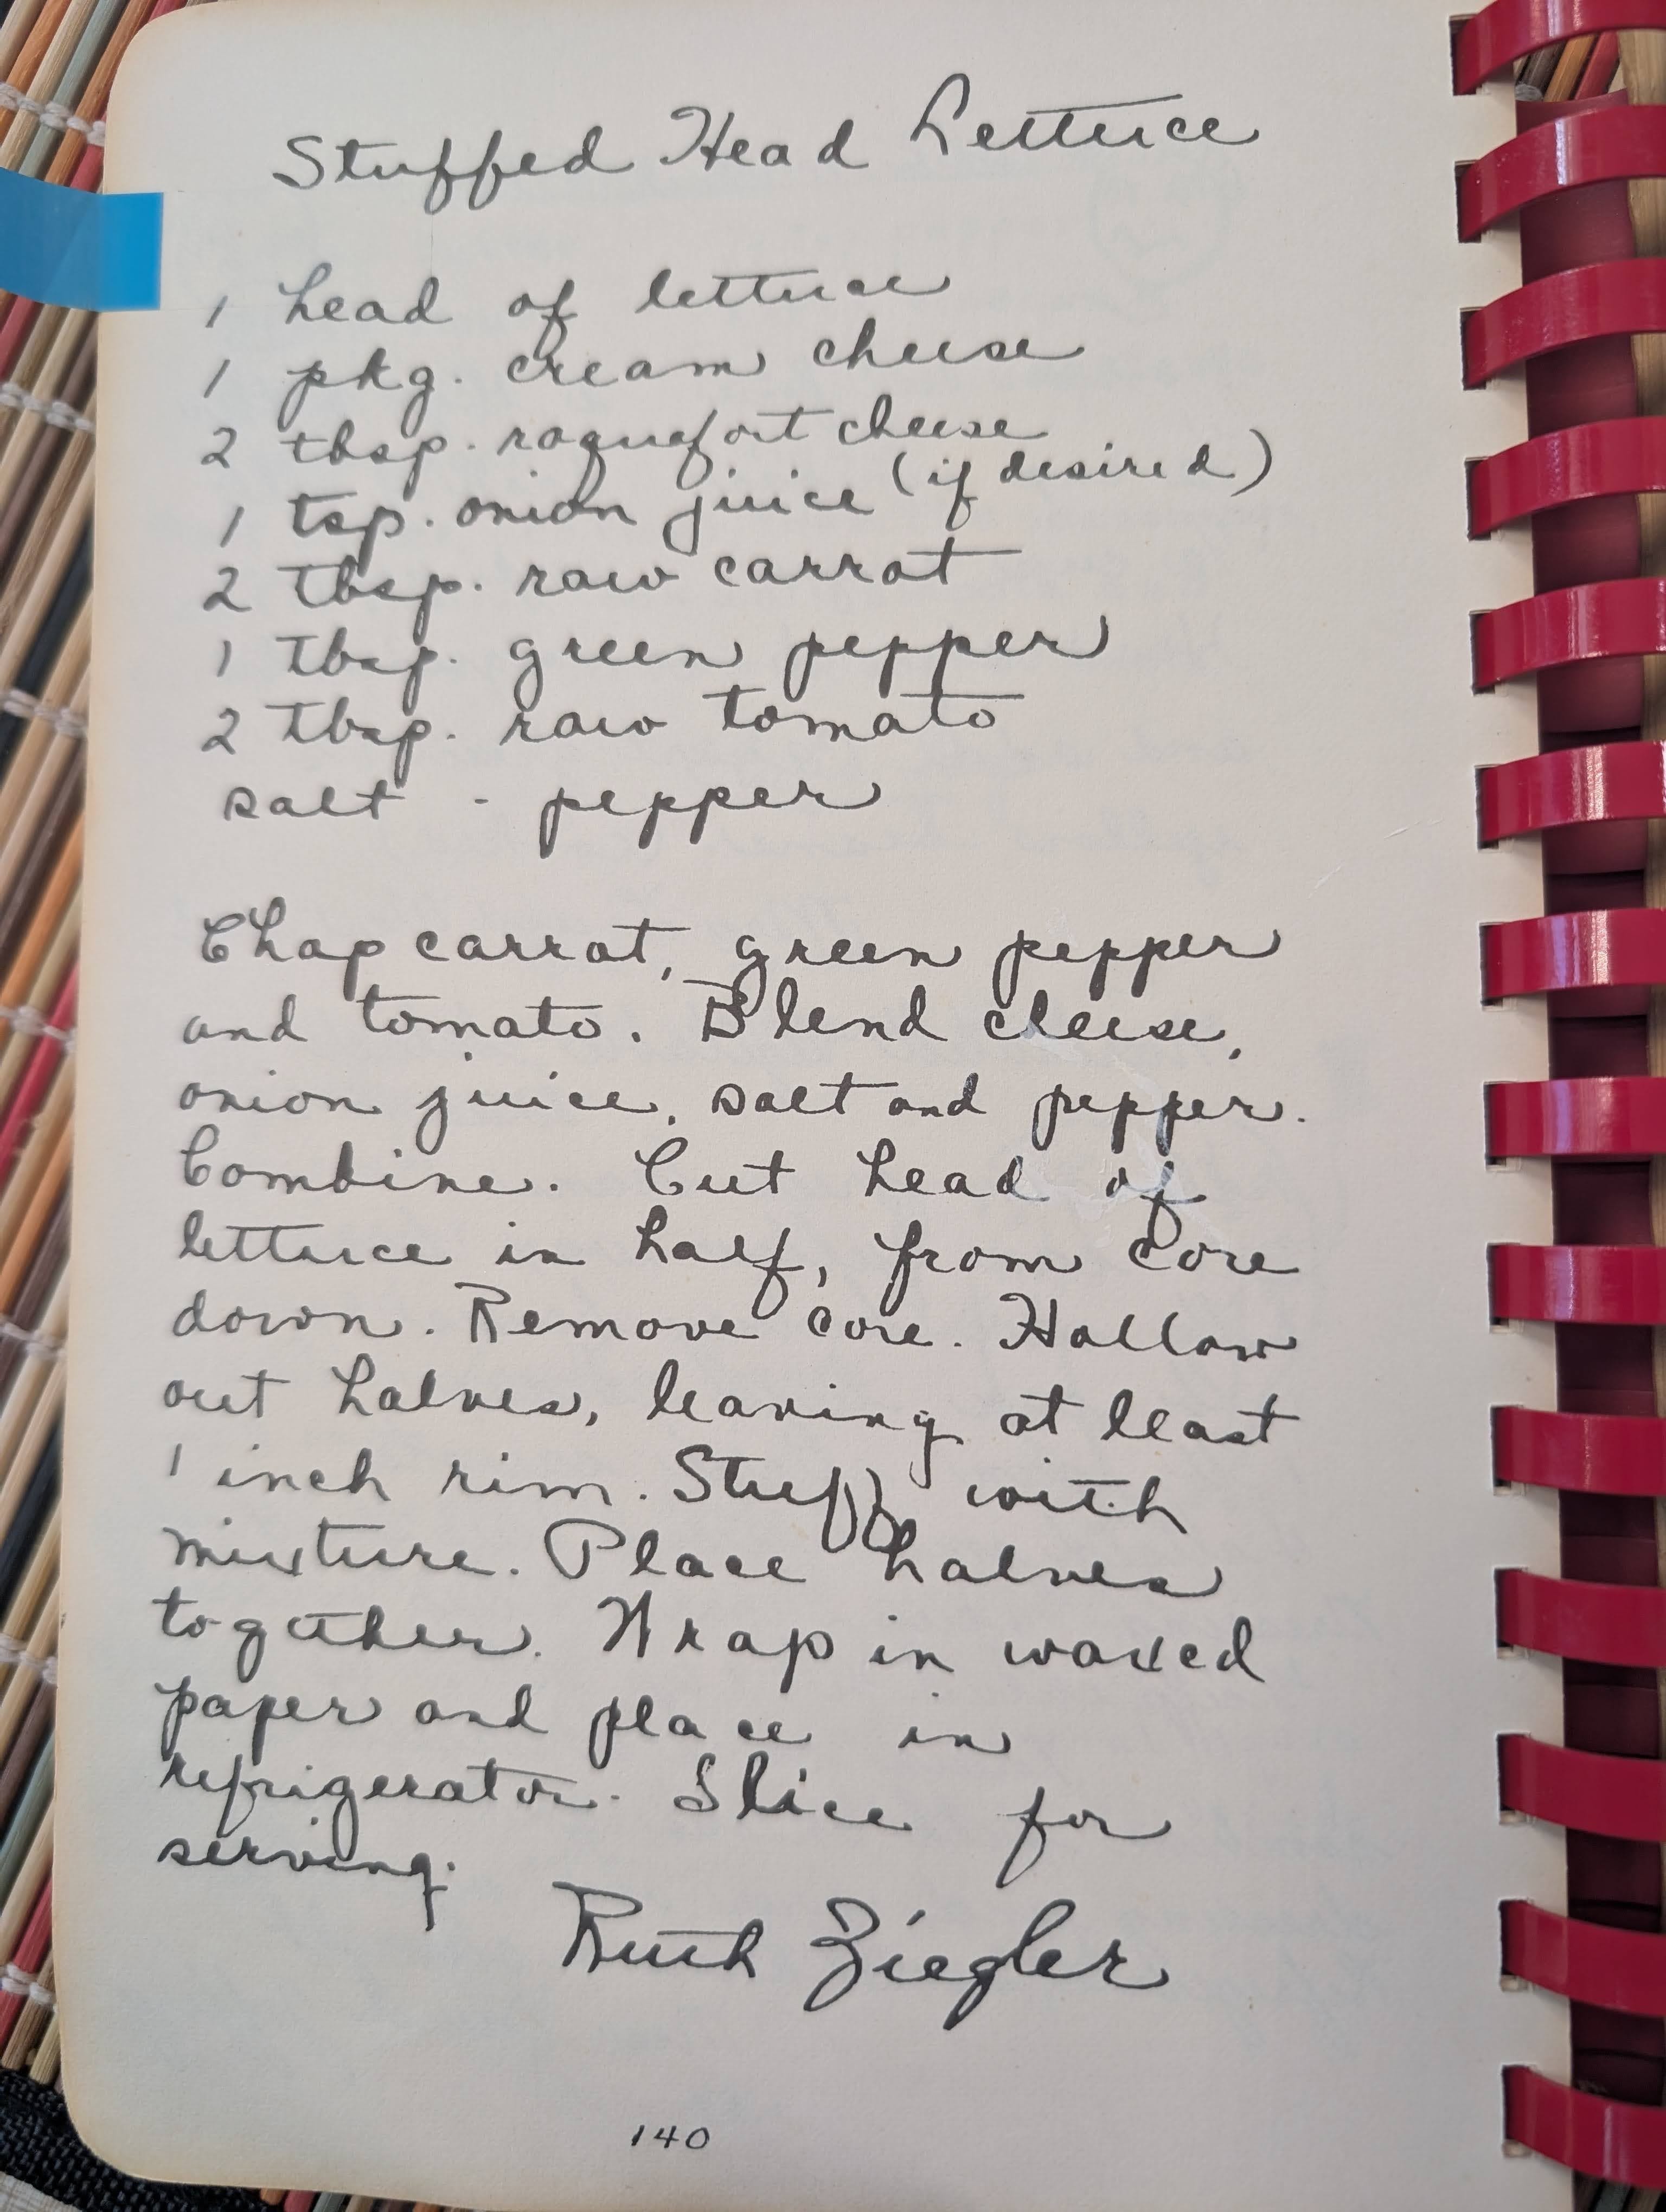 Stuffed Head Lettuce
1 head of lettuce
1 pkg. cream cheese
2 tbsp. roquefort cheese
1 tsp. onion juice (if desired)
2 tbsp. raw carrot
1 tbsp. green pepper
2 tbsp. raw tomato
salt - pepper
Chop carrot, green pepper
and tomato. Blend cheese,
onion juice, salt and pepper.
Combine. Cut head of
lettuce in half, from core
down. Remove core. Hollow
out halves, leaving at least
1 inch rim. Stuff with
mixture. Place halves
together. Wrap in waxed
paper and place in
refrigerator. Slice for
serving.
Ruth Ziegler
140